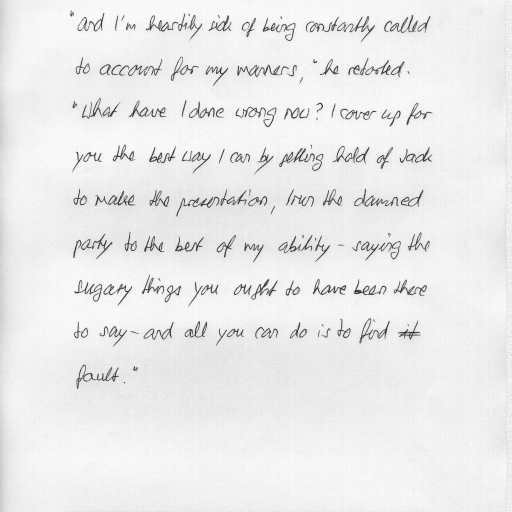 "And I'm heartily sick of being constantly called
to account for my manners," he retorted.
"What have I done wrong now? I cover up for
you the best way I can by getting hold of Jack
to make the presentation, I run the damned
party to the best of my ability - saying the
sugary things you ought to have been there
to say - and all you can do is to find it
fault."